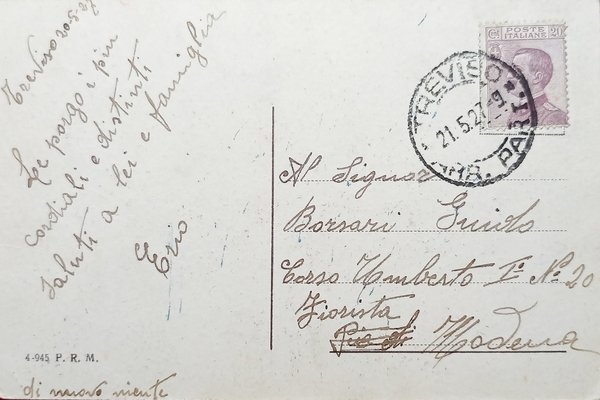 Treviso 20.5.27
Le porgo i più
cordiali e distinti
saluti a lei e famiglia
Ezio
4-945 P. R. M.
di nuovo niente
POSTE ITALIANE
Cmi 20
TREVISO
21.5.27-9
ARR. PART.
Al Signor
Borsari Guido
Corso Umberto I° N° 20
Fiorista
Modena